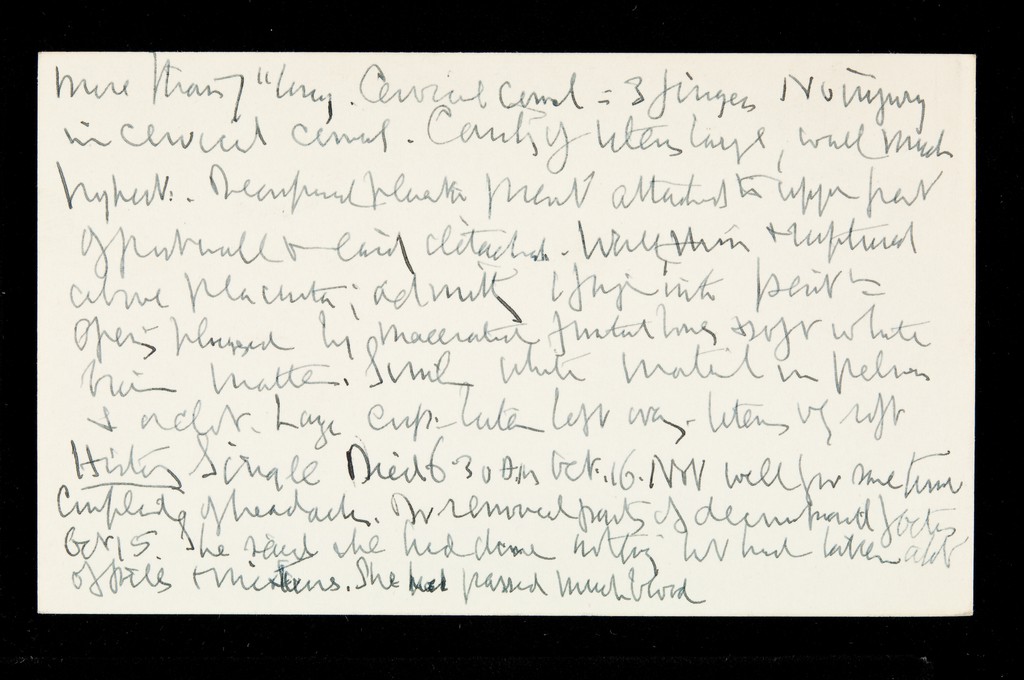 more than 7" long. Cervical canal = 3 fingers No injury
in cervical canal. Cavity of uterus large, wall much
hypert. Decomposed placenta present attached to upper part
of post wall & easily detached. Wall thin & ruptured
above placenta; admitting 1 finger into perit =
opening plugged by macerated frontal bone & soft white
brain matter. Similar white material in pelvis
& a clot. Large corp. luteum left ovary. Uterus v. soft
History Single Died 6 30 AM Oct. 16. Not well for some time
Complaining of headache. Dr removed parts of decomposed foetus
Oct 15. She said she had done nothing but had taken a lot
of pills & mixtures. She had passed much blood